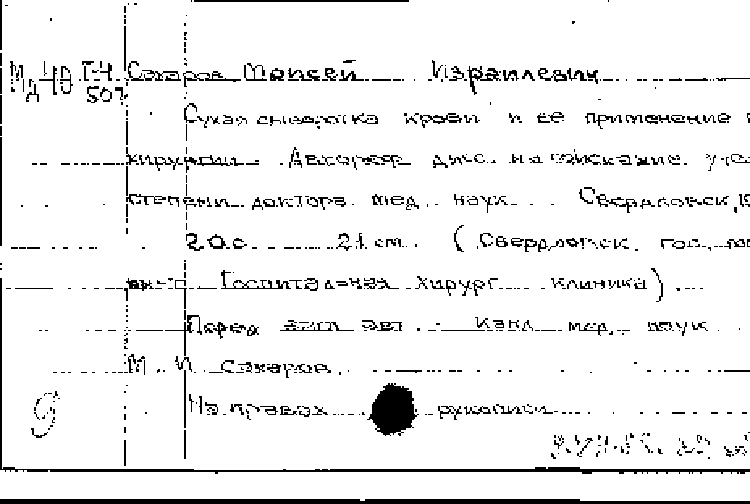 Мд 40 Г-4 Сахаров Моисей Израилевич
507
Сухая сыворотка крови и ее применение в
хирургии. Автореф. дисс. на соискание уче
степени доктора мед. наук. Свердловск,
20 с. 21 см. (Свердловск. гос.
Госпитальная хирург. клиника).
Перед загл. авт. : канд. мед. наук
М. И. Сахаров.
На правах рукописи
9